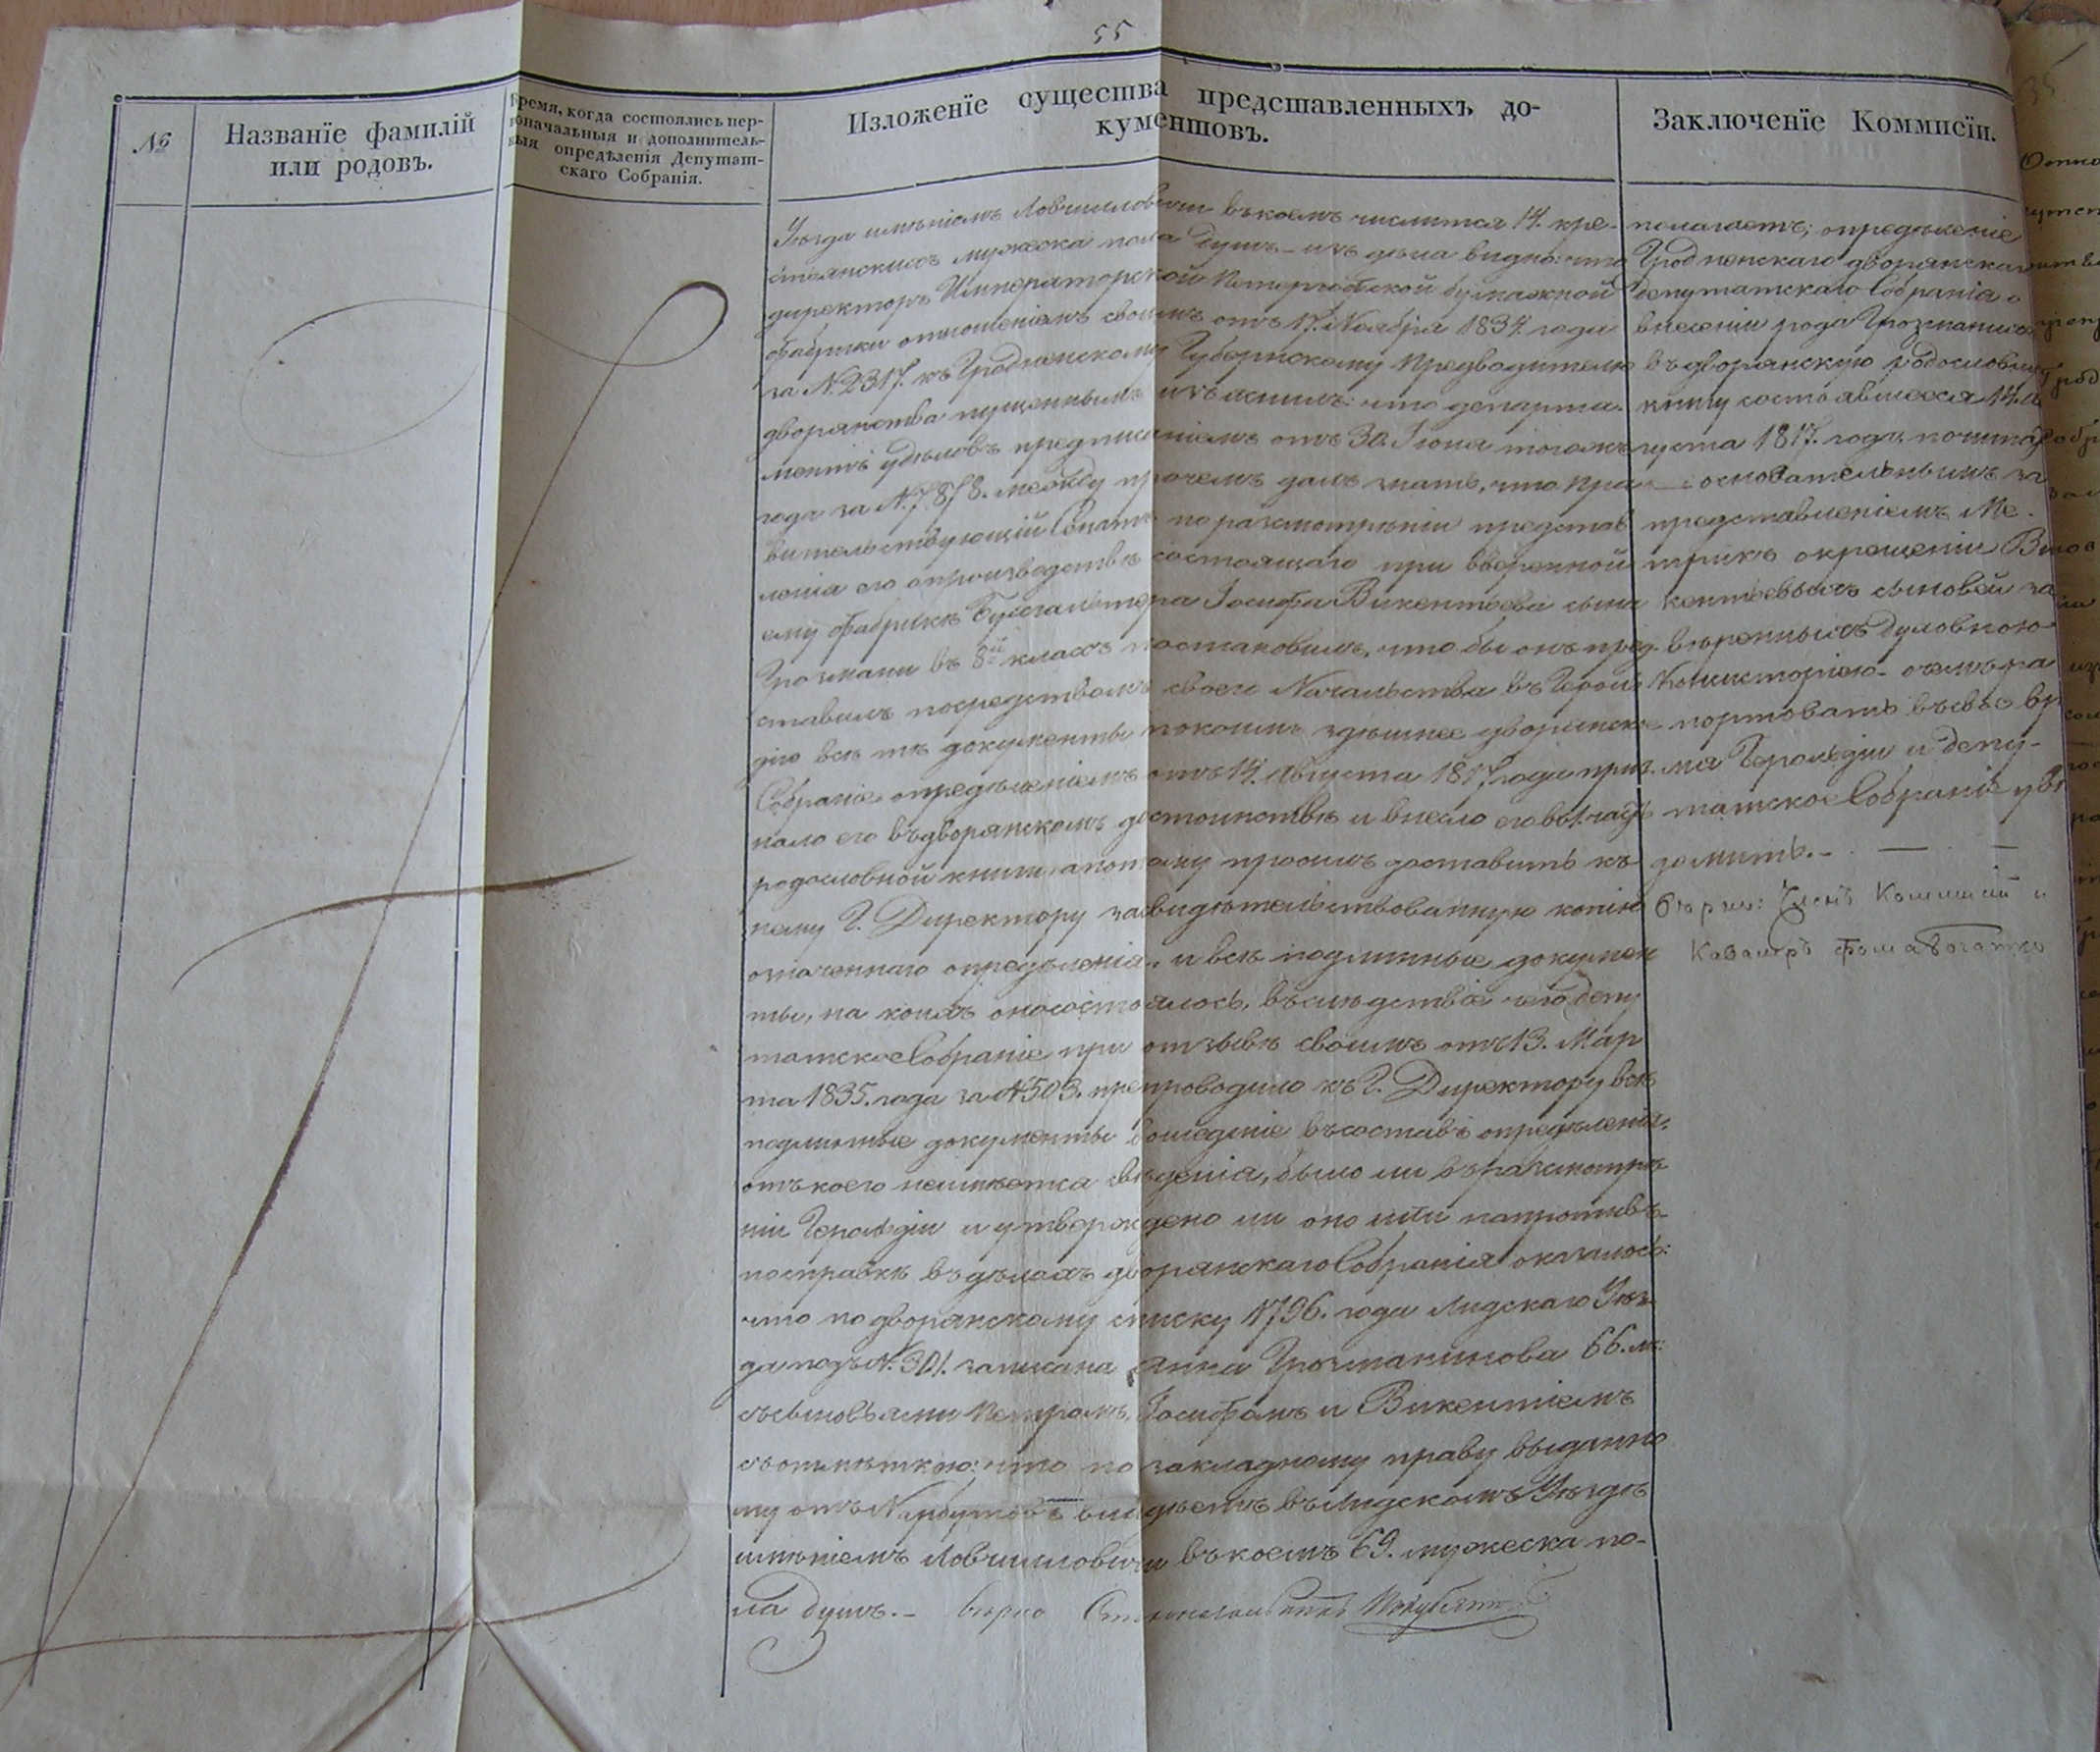 55
№
Названїе фамилій
или родовъ.
Время, когда состоялись пер-
воначальныя и дополнитель-
ныя опредѣленія Депутат-
скаго Собранія.
Изложенїе существа представленныхъ до-
кументовъ.
Заключенїе Коммисїи.
Уѣзда имѣніемъ Ловчилловичи въ коемъ числится 14. кре-
стьянскихъ мужеска пола душъ – изъ дѣла видно: что
директоръ Императорской Петергофской бумажной
фабрики отношеніемъ своимъ отъ 17. Ноября 1834. года
за N. 2317. къ Гродненскому Губернскому Предводителю
дворянства пущеннымъ изъяснилъ: что департа-
ментъ удѣловъ предписаніемъ отъ 30. Іюня тогожъ
года за N. 7878. между прочемъ далъ знать, что Пра-
вительствующій Сенатъ по разсмотрѣніи представ
ленія его о производствѣ состоящаго при ввѣренной
ему фабрикѣ Бухгалтера Іосифа Викентьева сына
Грозмани въ 8й классъ постановилъ, что бы онъ пред-
ставилъ посредствомъ своего Начальства въ Герольд
дію всѣ тѣ документы по коимъ здѣшнее дворянское
Собраніе опредѣленіемъ отъ 14. Августа 1817 года приз-
нало его въ дворянскомъ достоинствѣ и внесло его въ 1. часть
родословной книги, а потому просилъ доставить къ
нему Г. Директору засвидѣтельствованную копію
означеннаго опредѣленія, и всѣ подлинные докумен
ты, на коихъ оно состоялось, въ слѣдствіе чего депу
татское Собраніе при отзывѣ своимъ отъ 13. Мар
та 1835. года за N 503. препроводило къ Г. Директору всѣ
подлинные документы вошедшіе въ составъ опредѣленія,
отъ коего неимѣется свѣденія, было ли въ разсмотрѣ
ніи Герольдіи и утверждено ли оно или напротивъ-
по справкѣ въ дѣлахъ дворянскаго Собранія оказалось:
что по дворянскому списку 1796. года Лидскаго Уѣз
да подъ N. 301. записана Анна Грозманинова 66. лѣ:
съ сыновьями Петромъ, Іосифомъ и Викентіемъ
съ отмѣткою: что по закладному праву выданно
му отъ Нарбутовъ владѣетъ въ Лидскомъ Уѣздѣ
имѣніемъ Ловчилловичи въ коемъ 69. мужеска по-
ла душъ. – вѣрно
полагаетъ; опредѣленіе
Гродненскаго дворянскаго
депутатскаго Собранія о
внесеніи рода Грозмани
въ дворянскую родословную
книгу состоявшееся 14. А
густа 1817. года, почита
основательнымъ за
представленіемъ Ме-
трикъ о крещеніи Ви
кентьевыхъ сыновей за
вѣренныхъ Духовною
Консисторіею – о чемъ ра
портовать въ свое вре
мя Герольдіи и депу-
татское Собраніе увѣ
домить. – — —
вѣрно: Членъ Коммисіи и
Кавалеръ Фома